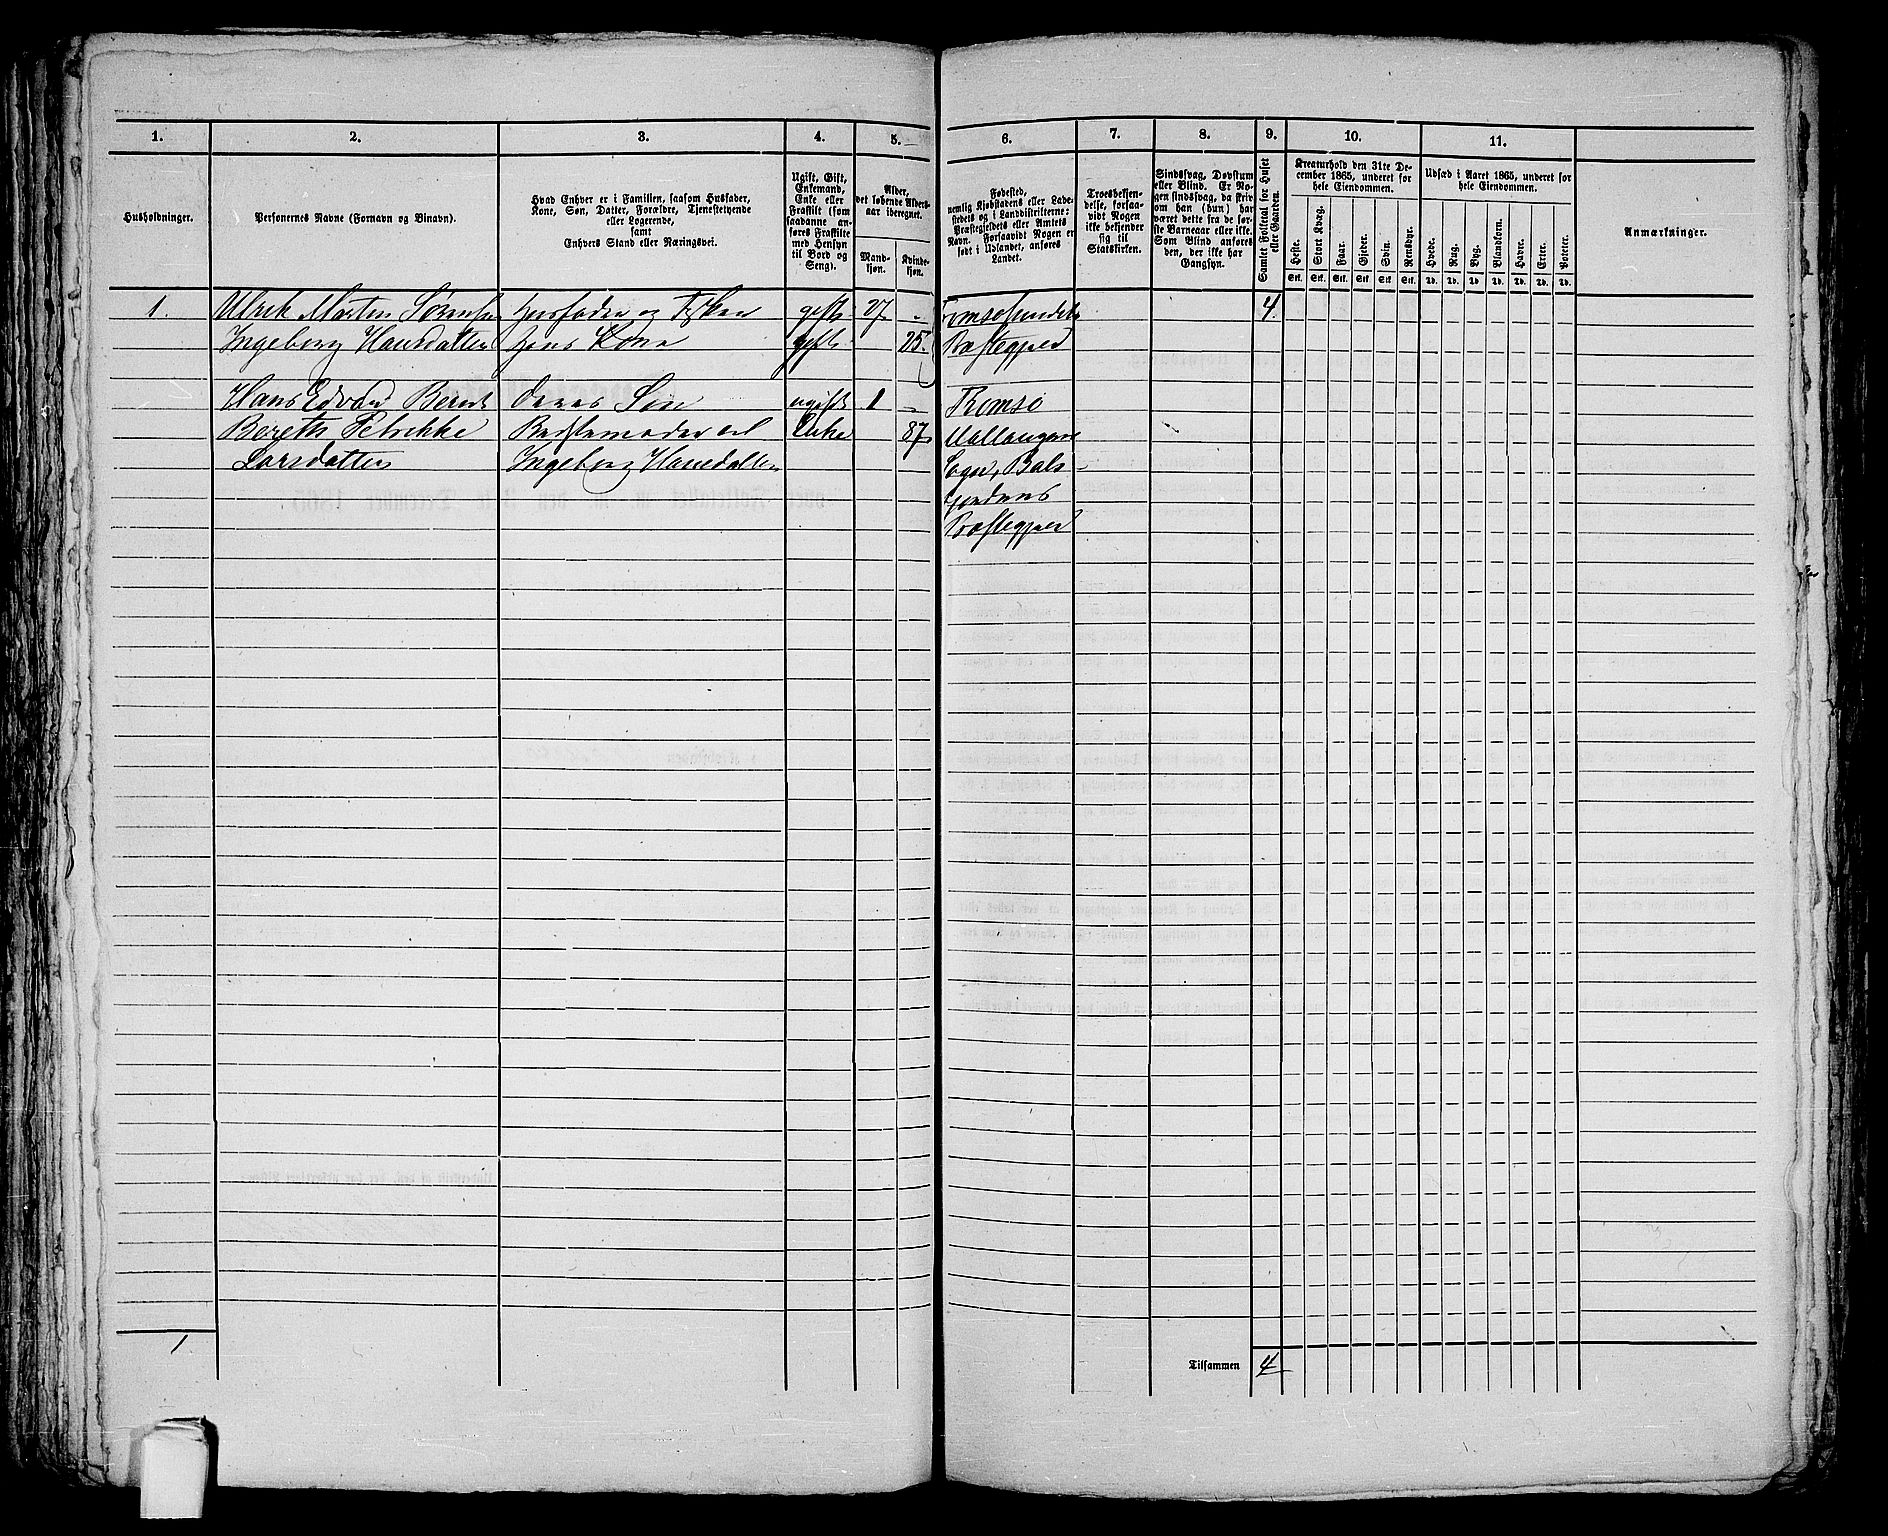 1. 2. 3. 4. 5. 6. 7. 8. 9. 10. 11.
Husholdninger.
Personernes Navne (Fornavn og Binavn).
Hvad Enhver er i Familien, saasom Husfader,
Kone, Søn, Datter, Forældre, Tjenestetyende
eller Logerende,
samt
Enhvers Stand eller Næringsvei.
Ugift, Gift,
Enkemand,
Enke eller
Fraskilt (som
saadanne an-
føres Fraskilte
med Hensyn
til Bord og
Seng).
Alder,
det løbende Alders-
aar iberegnet.
Mand-
kjøn.
Kvinde-
kjøn.
Fødested,
nemlig Kjøbstadens eller Lade-
stedets og i Landdistrikterne:
Præstegjeldets eller Amtets
Navn. Forsaavidt Nogen er
født i Udlandet, anføres
Landet.
Troesbekjen-
delse, forsaa-
vidt Nogen
ikke bekjender
sig til
Statskirken.
Sindssvag, Døvstum
eller Blind. Er No-
gen sindssvag, da skriv
om han (hun) har
været dette fra de før-
ste Barneaar eller ikke.
Som Blind anføres
den, der ikke har
Gangsyn.
Samlet Folketal for Huset
eller Gaarden.
Kreaturhold den 31te De-
cember 1865, underet for
hele Eiendommen.
Heste. Stort Kvæg. Faar. Gjeder. Svin. Rensdyr.
Stk. Stk. Stk. Stk. Stk. Stk.
Udsæd i Aaret 1865, underet for
hele Eiendommen.
Hvede. Rug. Byg. Blandkorn. Havre. Erter. Poteter.
Td. Td. Td. Td. Td. Td. Td.
Anmærkninger.
1. Ulrik Morten Sørensen Husfader og gift 27 - 4
Ingeborg Hansdatter hans Kone gift 25 Præstegjeld
Hans Edvard Berent Deres Søn ugift 1 - Tromsø
Bereth Petrikke Bedstemoder til Enke 87 Mallangens
Larsdatter Ingeborg Hansdatter Sogn, Bals-
fjordens
Præstegjeld
1
Tilsammen 4